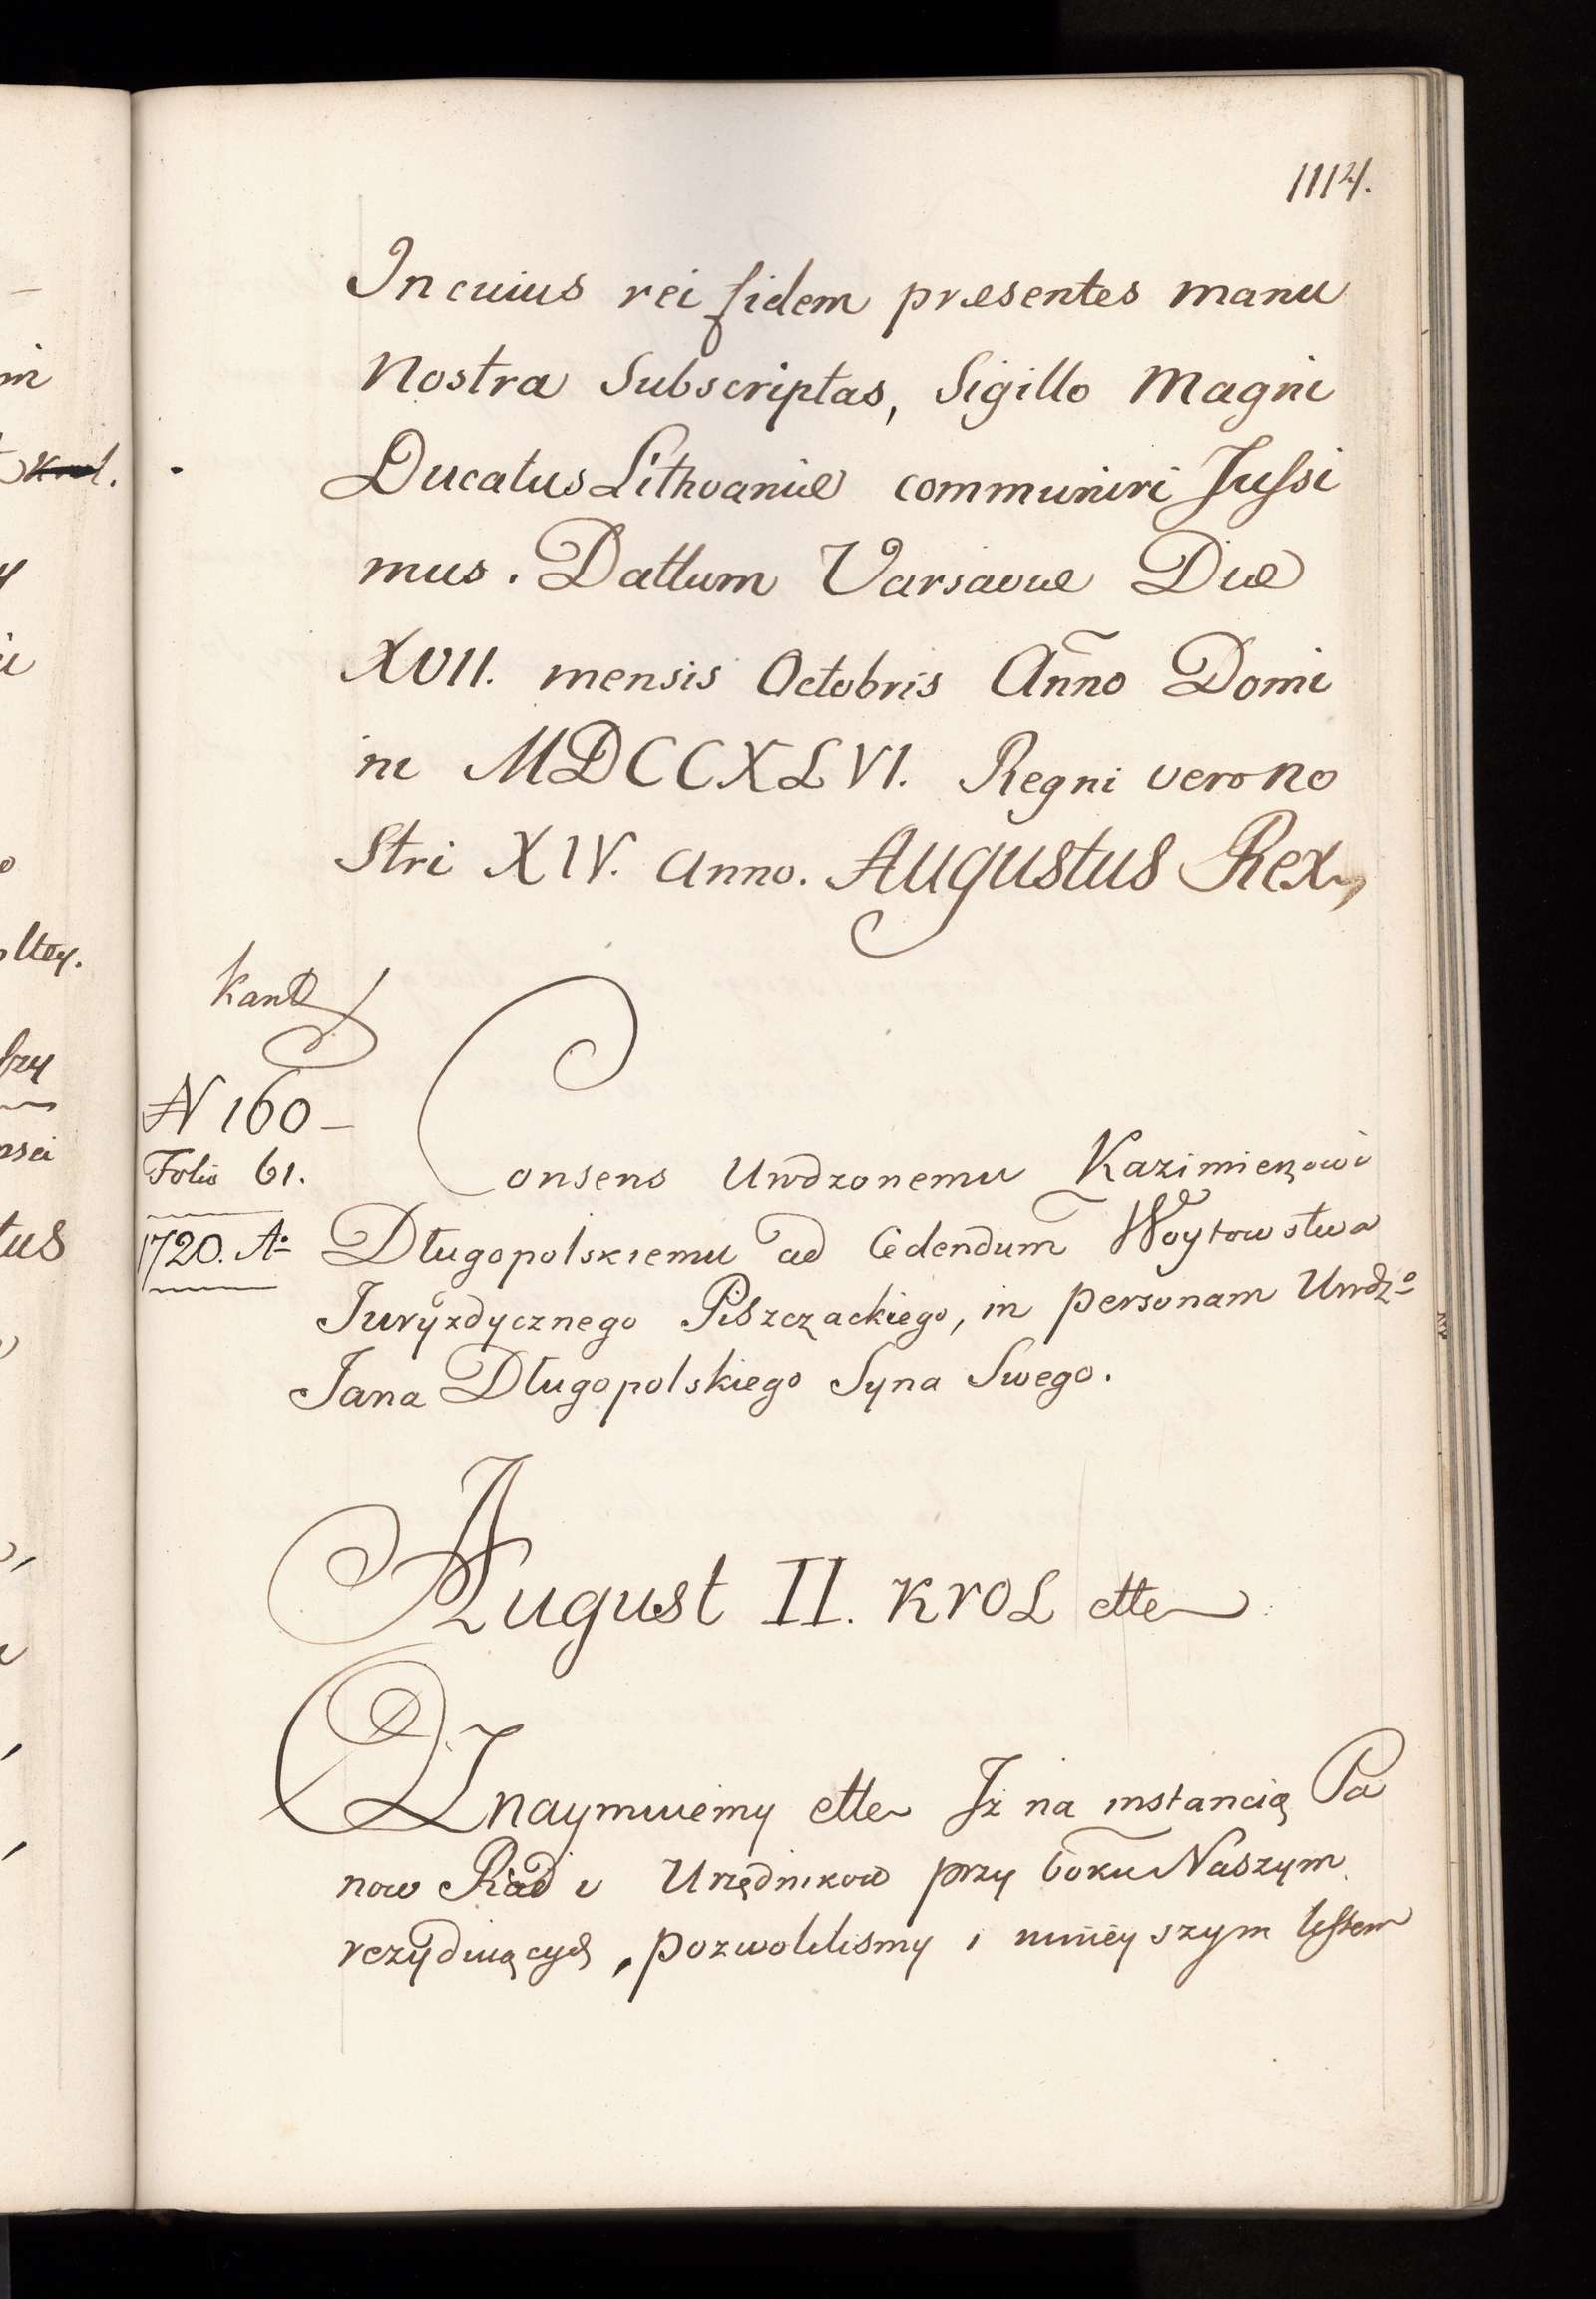 1114.
In cuius rei fidem præsentes manu
Nostra Subscriptas, Sigillo Magni
Ducatus Lithvaniæ communiri Jussi
mus. Dattum Varsaviæ Die
XVII. mensis Octobris Anno Domi
ni MDCCXLVI. Regni vero No
stri XIV. anno. Augustus Rex
N 160 –
Folio 61.
1720. Aº
Consens Urodzonemu Kazimierzowi
Długopolskiemu ad Cedendum Woytowstwa
Juryzdycznego Piszczackiego, in personam Urodzº
Jana Długopolskiego Syna Swego.
August II. Krol ettc
Oznaymuiemy ettc Iż na instancią Pa
now Rad i Urzędnikow przy boku Naszym
rezyduiących, pozwoliliśmy i ninieyszym listem
oltey.
bzy
tus